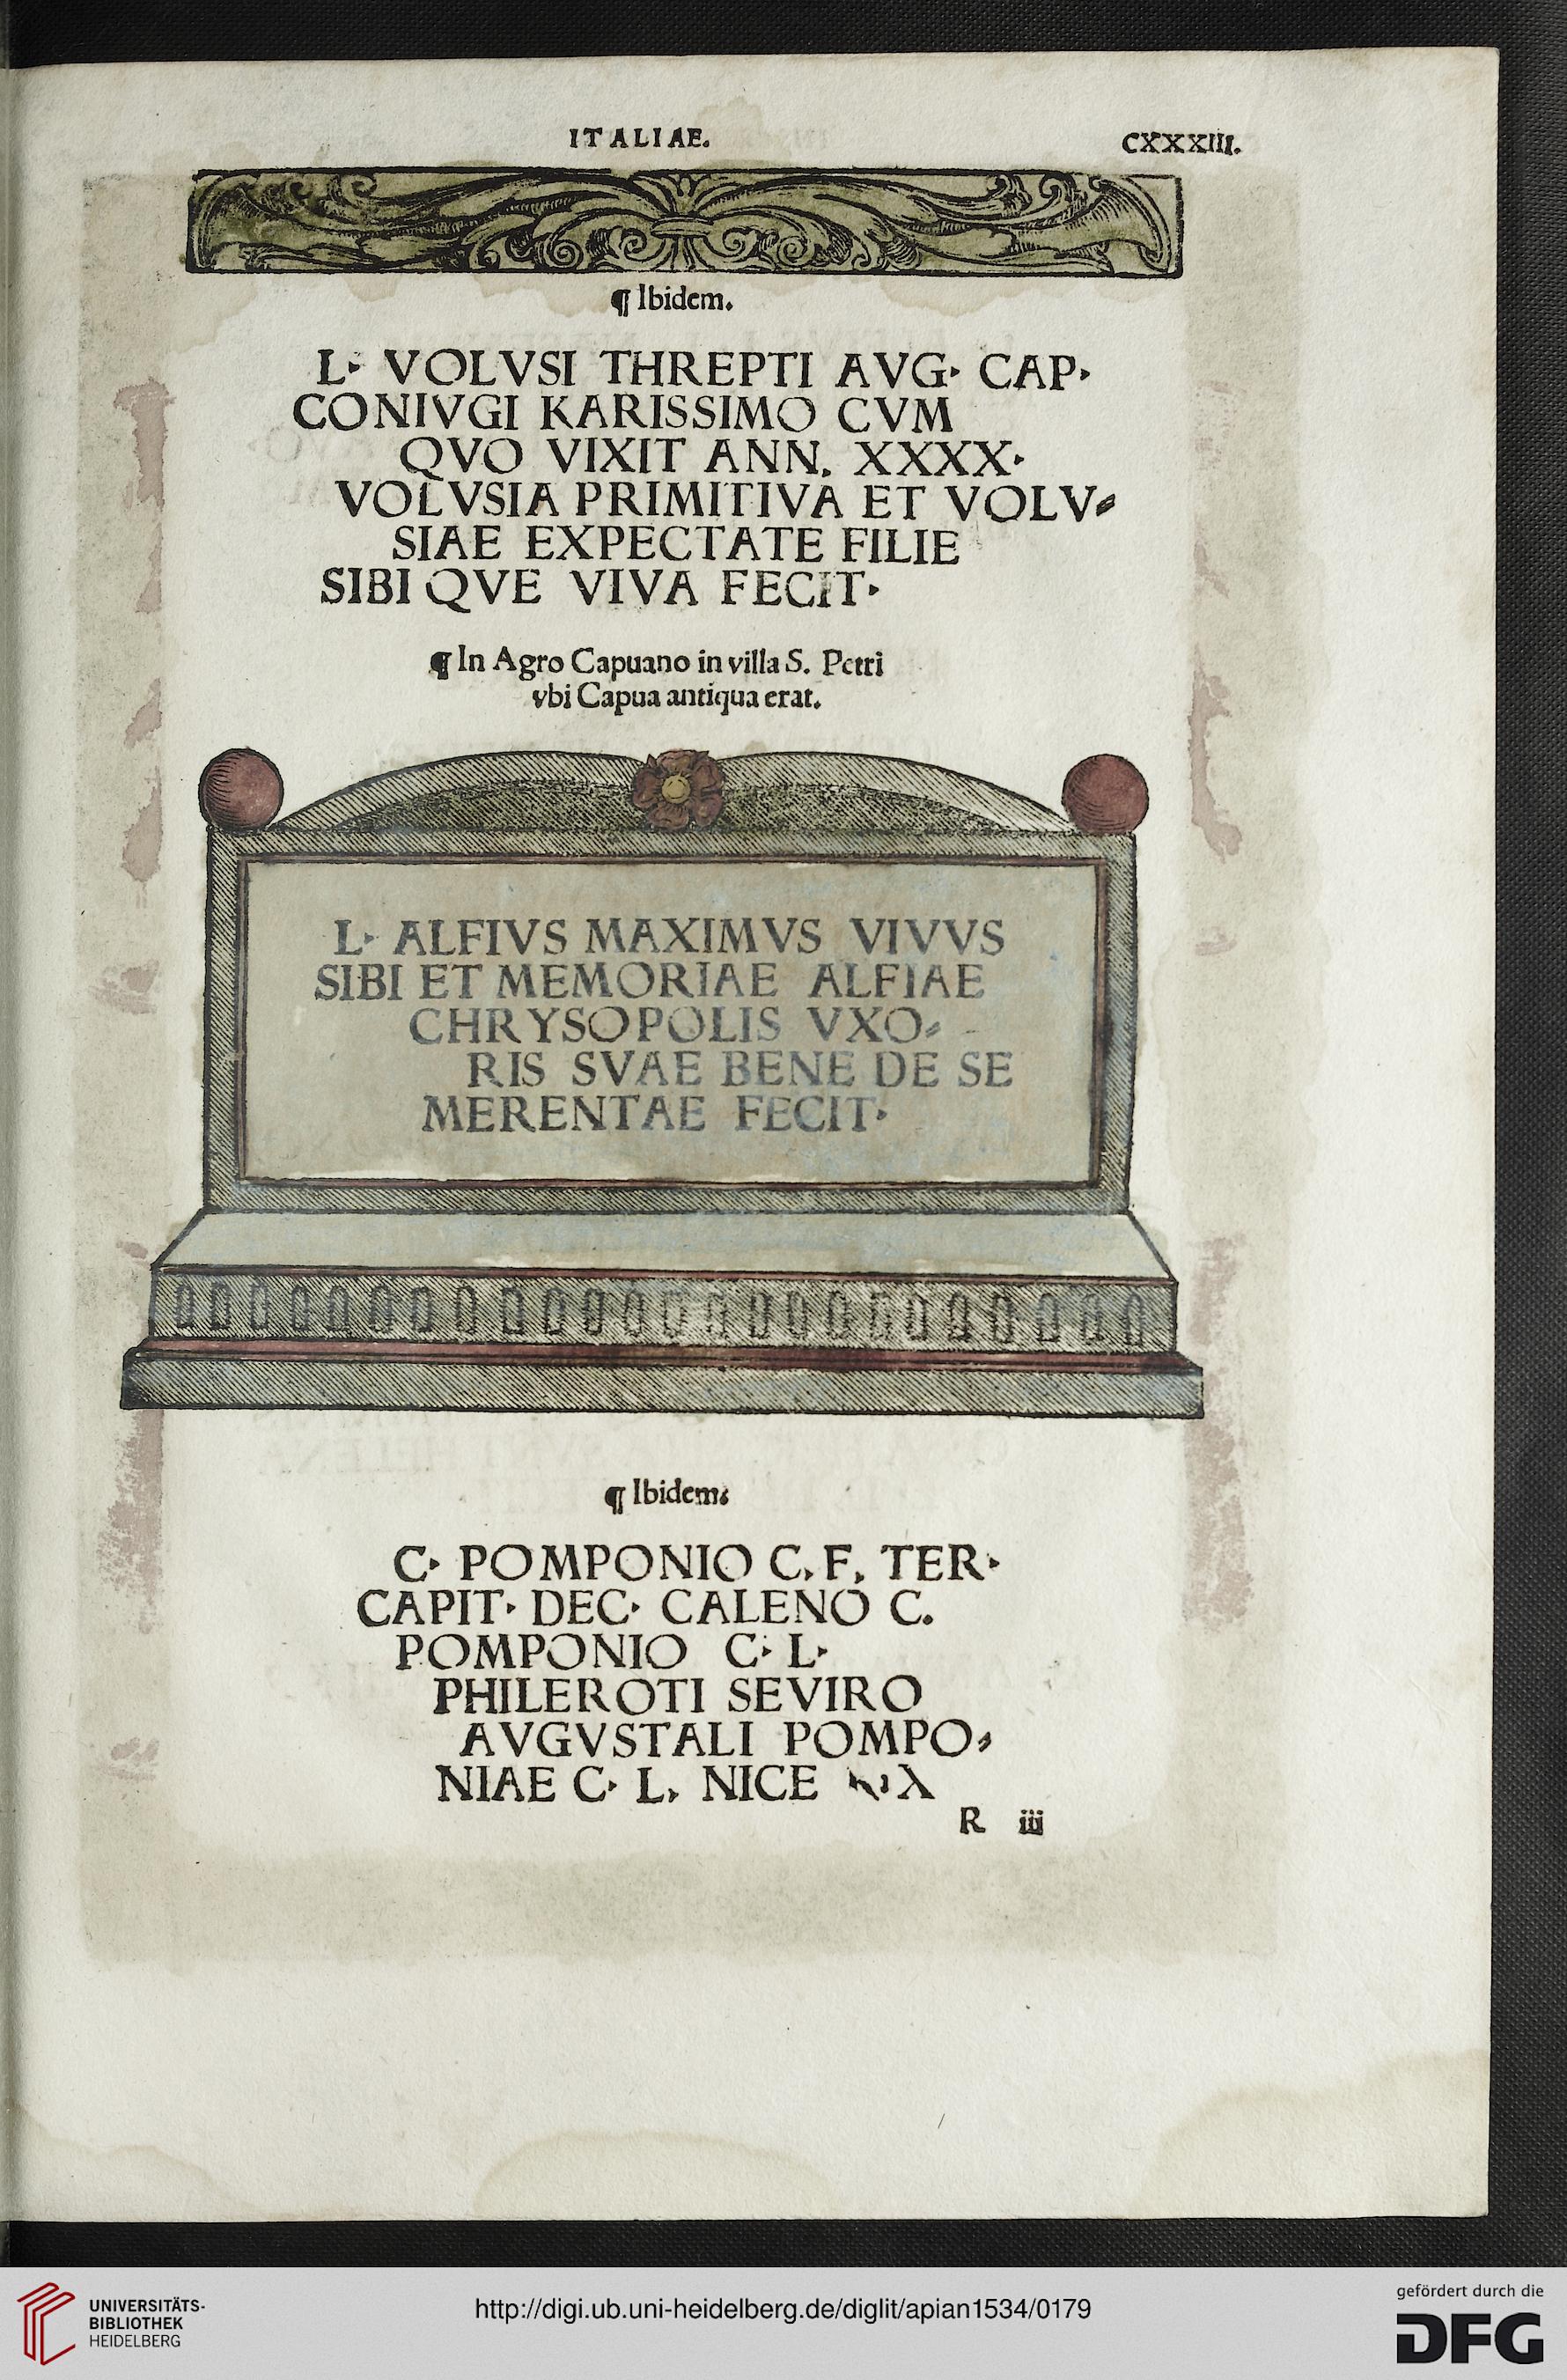 ITALIAE. CXXXIII.
¶ Ibidem.
L· VOLVSI THREPTI AVG· CAP·
CONIVGI KARISSIMO CVM
QVO VIXIT ANN. XXXX·
VOLVSIA PRIMITIVA ET VOLV⸗
SIAE EXPECTATE FILIE
SIBI QVE VIVA FECIT·
¶ In Agro Capuano in villa S. Petri
vbi Capua antiqua erat.
L· ALFIVS MAXIMVS VIVVS
SIBI ET MEMORIAE ALFIAE
CHRYSOPOLIS VXO⸗
RIS SVAE BENE DE SE
MERENTAE FECIT·
¶ Ibidem:
C· POMPONIO C. F. TER·
CAPIT· DEC· CALENO C.
POMPONIO C· L·
PHILEROTI SEVIRO
AVGVSTALI POMPO⸗
NIAE C· L. NICE
R iii
UNIVERSITÄTS-
BIBLIOTHEK
HEIDELBERG
http://digi.ub.uni-heidelberg.de/diglit/apian1534/0179
gefördert durch die
DFG